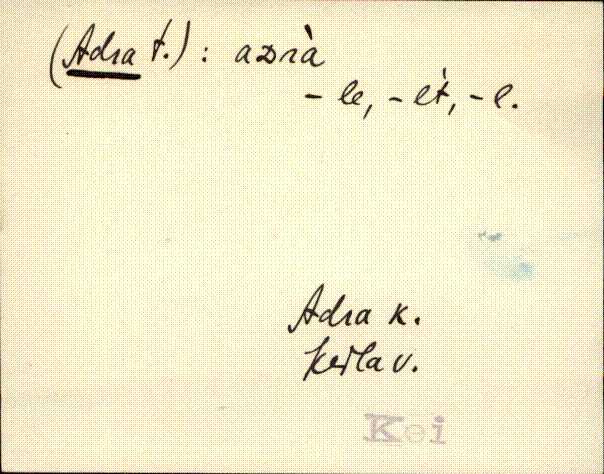 (Adra t.) : aᴅrà
- le, - èt, - l.
Adra k.
Keila v.
Kei